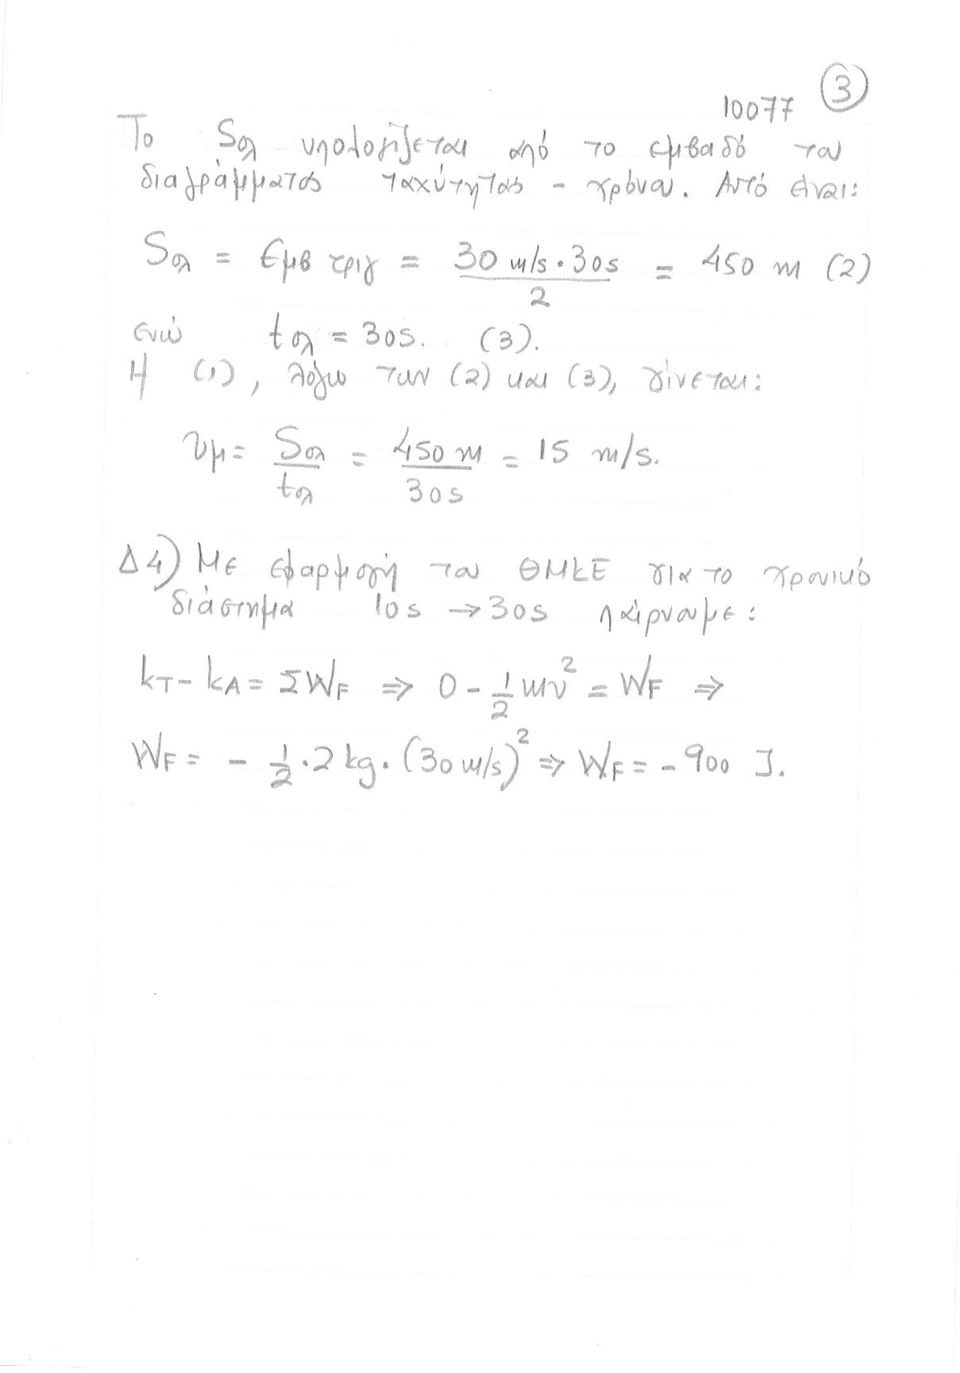 10077 3
Το Sολ υπολογίζεται από το εμβαδό του
διαγράμματος ταχύτητας - χρόνου. Αυτό είναι:
Sολ = Εμβ τριγ = 30 m/s · 30s / 2 = 450 m (2)
ενώ tολ = 30s. (3).
Η (1), λόγω των (2) και (3), γίνεται:
υμ = Sολ / tολ = 450 m / 30s = 15 m/s.
Δ4) Με εφαρμογή του ΘΜΚΕ για το χρονικό
διάστημα 10s → 30s παίρνουμε:
kT - kA = ΣWF ⇒ 0 - 1/2 mυ² = WF ⇒
WF = - 1/2 · 2 kg · (30 m/s)² ⇒ WF = - 900 J.